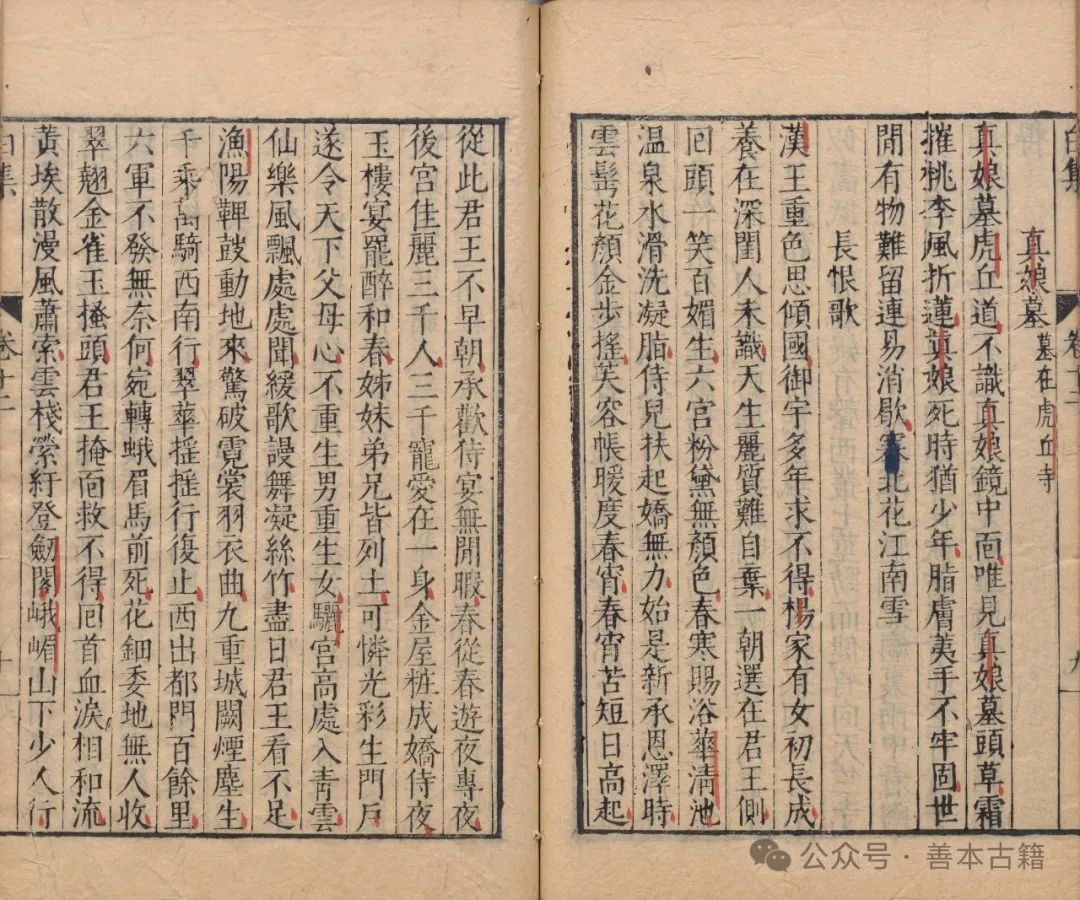 白集
卷十二
九
真娘墓 墓在虎丘寺
真娘墓虎丘道不識真娘鏡中面唯見真娘墓頭草霜
摧桃李風折蓮真娘死時猶少年脂膚荑手不牢固世
間有物難留連易消歇塞北花江南雪
長恨歌
漢王重色思傾國御宇多年求不得楊家有女初長成
養在深閨人未識天生麗質難自棄一朝選在君王側
回頭一笑百媚生六宮粉黛無顏色春寒賜浴華清池
温泉水滑洗凝脂侍兒扶起嬌無力始是新承恩澤時
雲髩花顏金步搖芙容帳暖度春宵春宵苦短日高起
從此君王不早朝承歡侍宴無閒暇春從春遊夜專夜
後宮佳麗三千人三千寵愛在一身金屋粧成嬌侍夜
玉樓宴罷醉和春姊妹弟兄皆列土可憐光彩生門戶
遂令天下父母心不重生男重生女驪宮高處入靑雲
仙樂風飄處處聞緩歌謾舞凝絲竹盡日君王看不足
漁陽鞞鼓動地來驚破霓裳羽衣曲九重城闕煙塵生
千乘萬騎西南行翠華揺揺行復止西出都門百餘里
六軍不發無奈何宛轉蛾眉馬前死花鈿委地無人收
翠翹金雀玉搔頭君王掩面救不得回首血淚相和流
黃埃散漫風蕭索雲棧縈紆登劒閣峨嵋山下少人行
白集
卷十二
公众号 · 善本古籍